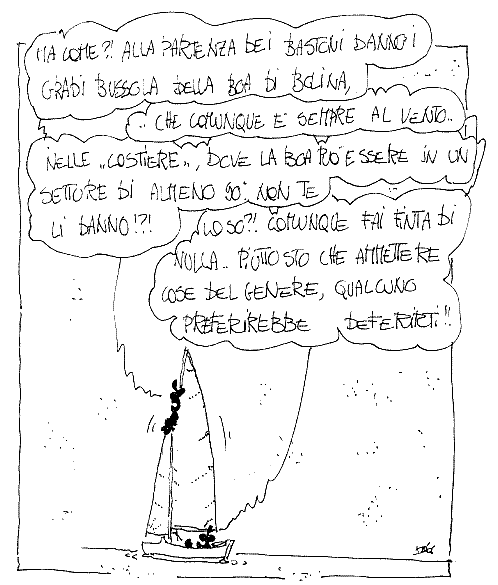 MA COME?! ALLA PARTENZA DEI BASTONI DANNO I
GRADI BUSSOLA DELLA BOA DI BOLINA,
.. CHE COMUNQUE E' SEMPRE AL VENTO..
NELLE "COSTIERE", DOVE LA BOA PUO' ESSERE IN UN
SETTORE DI ALMENO 90° NON TE
LI DANNO!?!
LO SO?! COMUNQUE FAI FINTA DI
NULLA.. PIUTTOSTO CHE AMMETTERE
COSE DEL GENERE, QUALCUNO
PREFERIREBBE DEFERIRTI!!